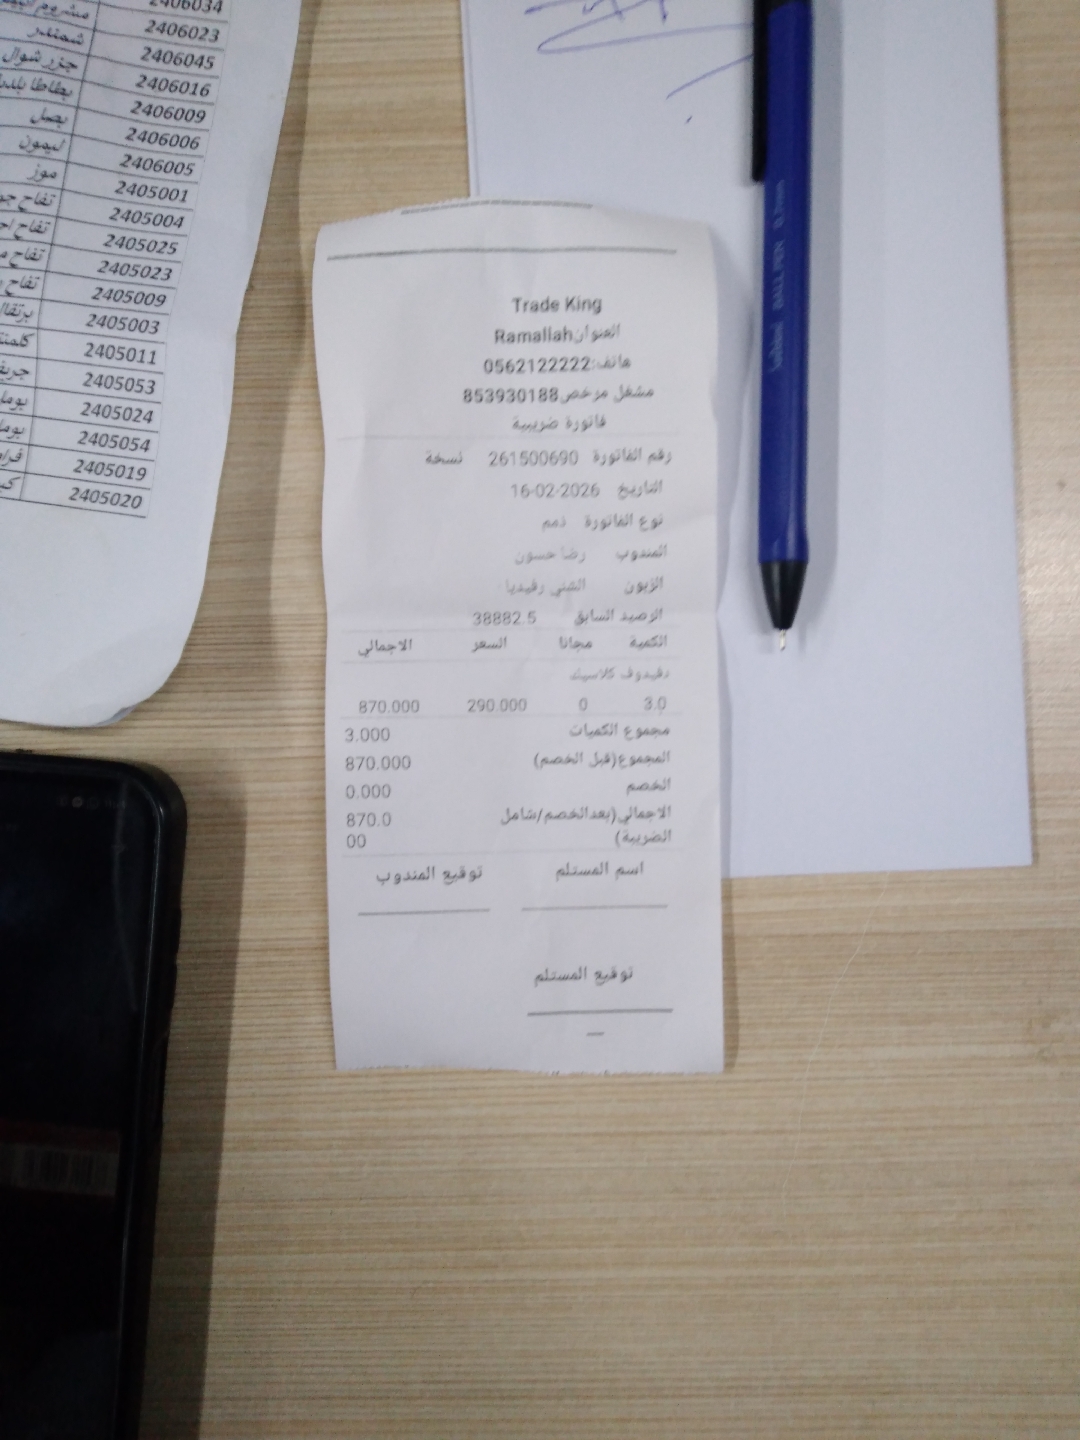 2406034
2406023
شمندر 2406045
جزر شوال 2406016
بطاطا بلدي 2406009
بصل 2406006
ليمون 2406005
موز 2405001
2405004
2405025
2405023
2405009
2405003
2405011
2405053
2405024
2405054
2405019
2405020
BALL PEN 0.7mm
Trade King
العنوان:Ramallah
هاتف:0562122222
مشغل مرخص853930188
فاتورة ضريبية
رقم الفاتورة 261500690 نسخة
التاريخ 16-02-2026
نوع الفاتورة ذمم
المندوب رضا حسون
الزبون الشني رفيديا
الرصيد السابق 38882.5
الكمية مجانا السعر الاجمالي
دفيدوف كلاسيك
3.0 0 290.000 870.000
مجموع الكميات 3.000
المجموع(قبل الخصم) 870.000
الخصم 0.000
الاجمالي(بعدالخصم/شامل 870.0
الضريبة) 00
اسم المستلم توقيع المندوب
توقيع المستلم